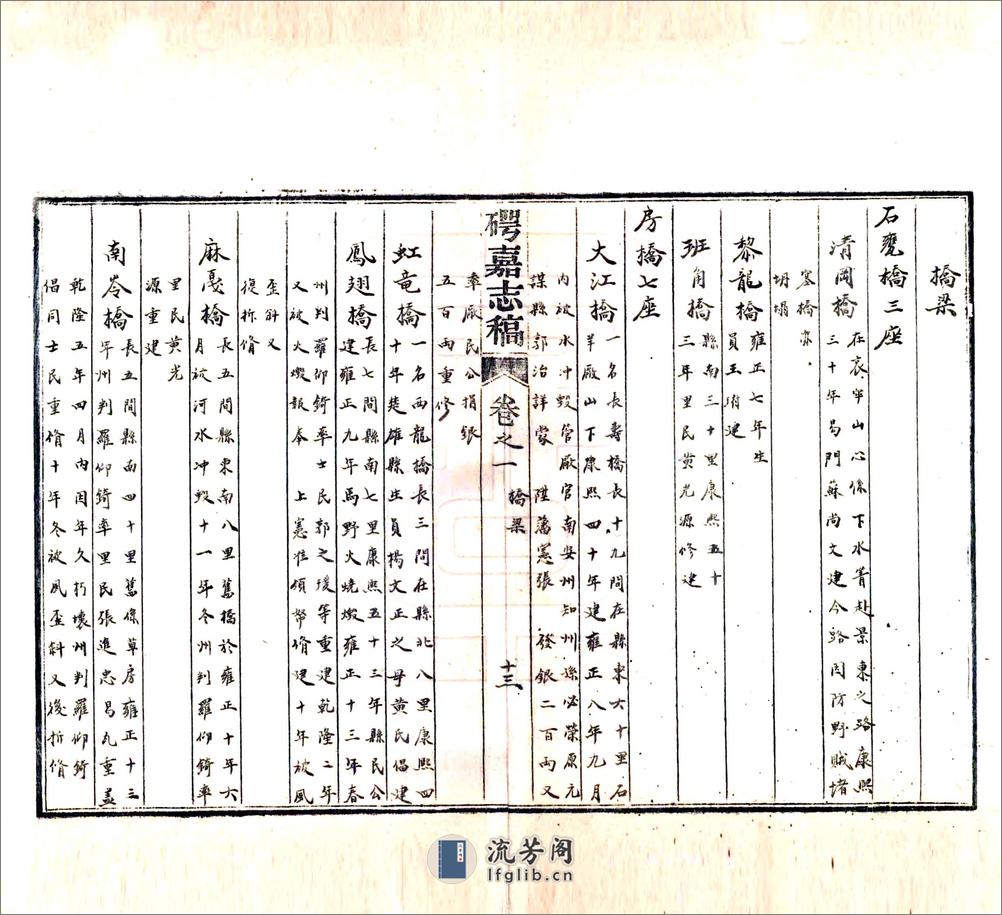 橋梁
石甕橋三座
清岡橋
在哀牢山心係下水箐赴景東之路康熙
三十年昜門蘇尚文建今路因防野賊堵
塞橋亦
坍塌
黎龍橋
雍正七年生
員王 建
班角橋
縣南三十里康熙五十
三年里民黄光源修建
房橋七座
大江橋
一名長壽橋長十九間在縣東六十里石
羊厰山下康熙四十年建雍正八年九月
内被水冲毁管厰官南安州知州孫必榮原元
謀縣郭治詳蒙 陞藩憲張 發銀二百両又
率厰民公捐銀
五百両重修
碍嘉志稿 卷之一 橋梁 十三
虹竜橋
一名西龍橋長三間在縣北八里康熙四
十年楚雄縣生員楊文正之母黄氏倡建
鳳翅橋
長七間縣南七里康熙五十三年縣民公
建雍正九年爲野火燒燬雍正十三年春
州判羅仰錡率士民郭之瑗等重建乾隆二年
又被火燬報奉 上憲准領帑脩建十年被風
歪斜又
復拆脩
麻戛橋
長五間縣東南八里舊橋於雍正十年六
月被河水冲毁十一年冬州判羅仰錡率
里民黄光
源重建
南岺橋
長五間縣南四十里舊係草房雍正十三
年州判羅仰錡率里民張進忠昜瓦重盖
乾隆五年四月内因年久朽壞州判羅仰錡
倡同士民重脩十年冬被風歪斜又復折脩
流芳阁
lfglib.cn